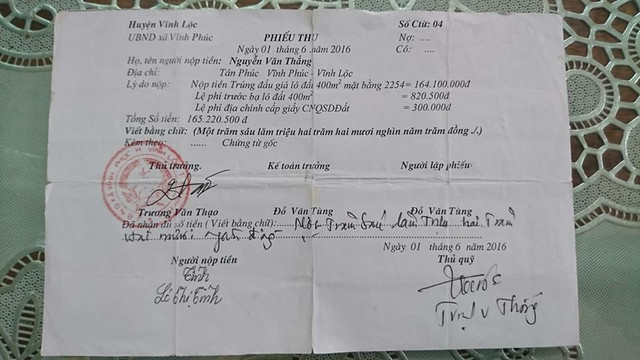 Huyện Vĩnh Lộc
UBND xã Vĩnh Phúc
PHIẾU THU
Số Ctừ: 04
Ngày 01 tháng 6 năm 2016
Nợ: ....
Có: ....
Họ, tên người nộp tiền: Nguyễn Văn Thắng
Địa chỉ: Tân Phúc Vĩnh Phúc - Vĩnh Lộc
Lý do nộp: Nộp tiền Trúng đấu giá lô đất 400m² mặt bằng 2254 = 164.100.000đ
Lệ phí trước bạ lô đất 400m² = 820.500đ
Lệ phí địa chính cấp giấy CNQSDĐất = 300.000đ
Tổng Số tiền: 165.220.500đ
Viết bằng chữ: (Một trăm sáu lăm triệu hai trăm hai mươi nghìn năm trăm đồng ./.)
Kèm theo: ...... Chứng từ gốc
Thủ trưởng. Kế toán trưởng Người lập phiếu
Trương Văn Thạo Đỗ Văn Tùng Đỗ Văn Tùng
Đã nhận đủ số tiền ( Viết bằng chữ): Một Trăm Sáu lăm Triệu hai Trăm
hai mươi ngàn đồng
Ngày 01 tháng 6 năm 2016
Người nộp tiền Thủ quỹ
Tình
Lê Thị Tình